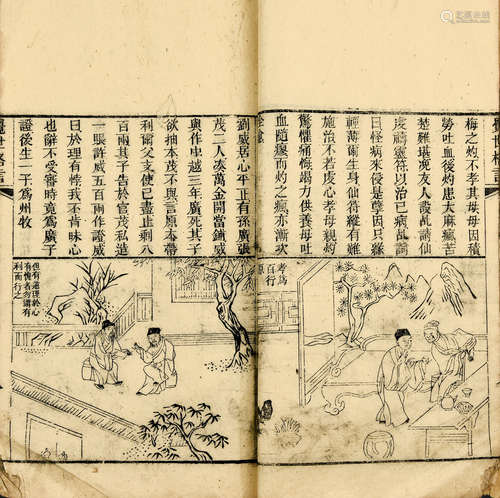 梅之灼不孝其母母因積
勞吐血後灼患大麻瘋苦
楚難堪 友人設乩請仙
虔禱靈符以治已病乩
曰怪病來侵是孽因只緣
輕薄爾生身仙符縱有難
施治不若虔心孝母親灼
驚懼痛悔竭力供養母吐
血隨瘳而灼之瘋亦漸次
全愈
孝為
百行
原
劉威居心平正有孫廣張
茂二人湊萬金開當鋪威
與作中越三年廣死其子
欲抽本茂不與言原本帶
利爾父支使已盡止剩八
百兩其子告於官茂私造
一張許威五百兩作證威
曰於理有悖我不肯昧心
也辭不受審時竟為廣子
證後生一子為州牧
但有違理於心
有愧者勿謂有
利而行之